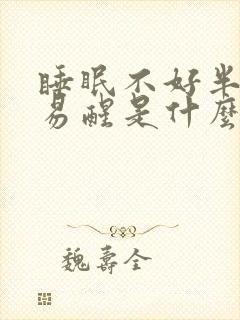 睡眠不好半
易醒是什麼
魏壽全